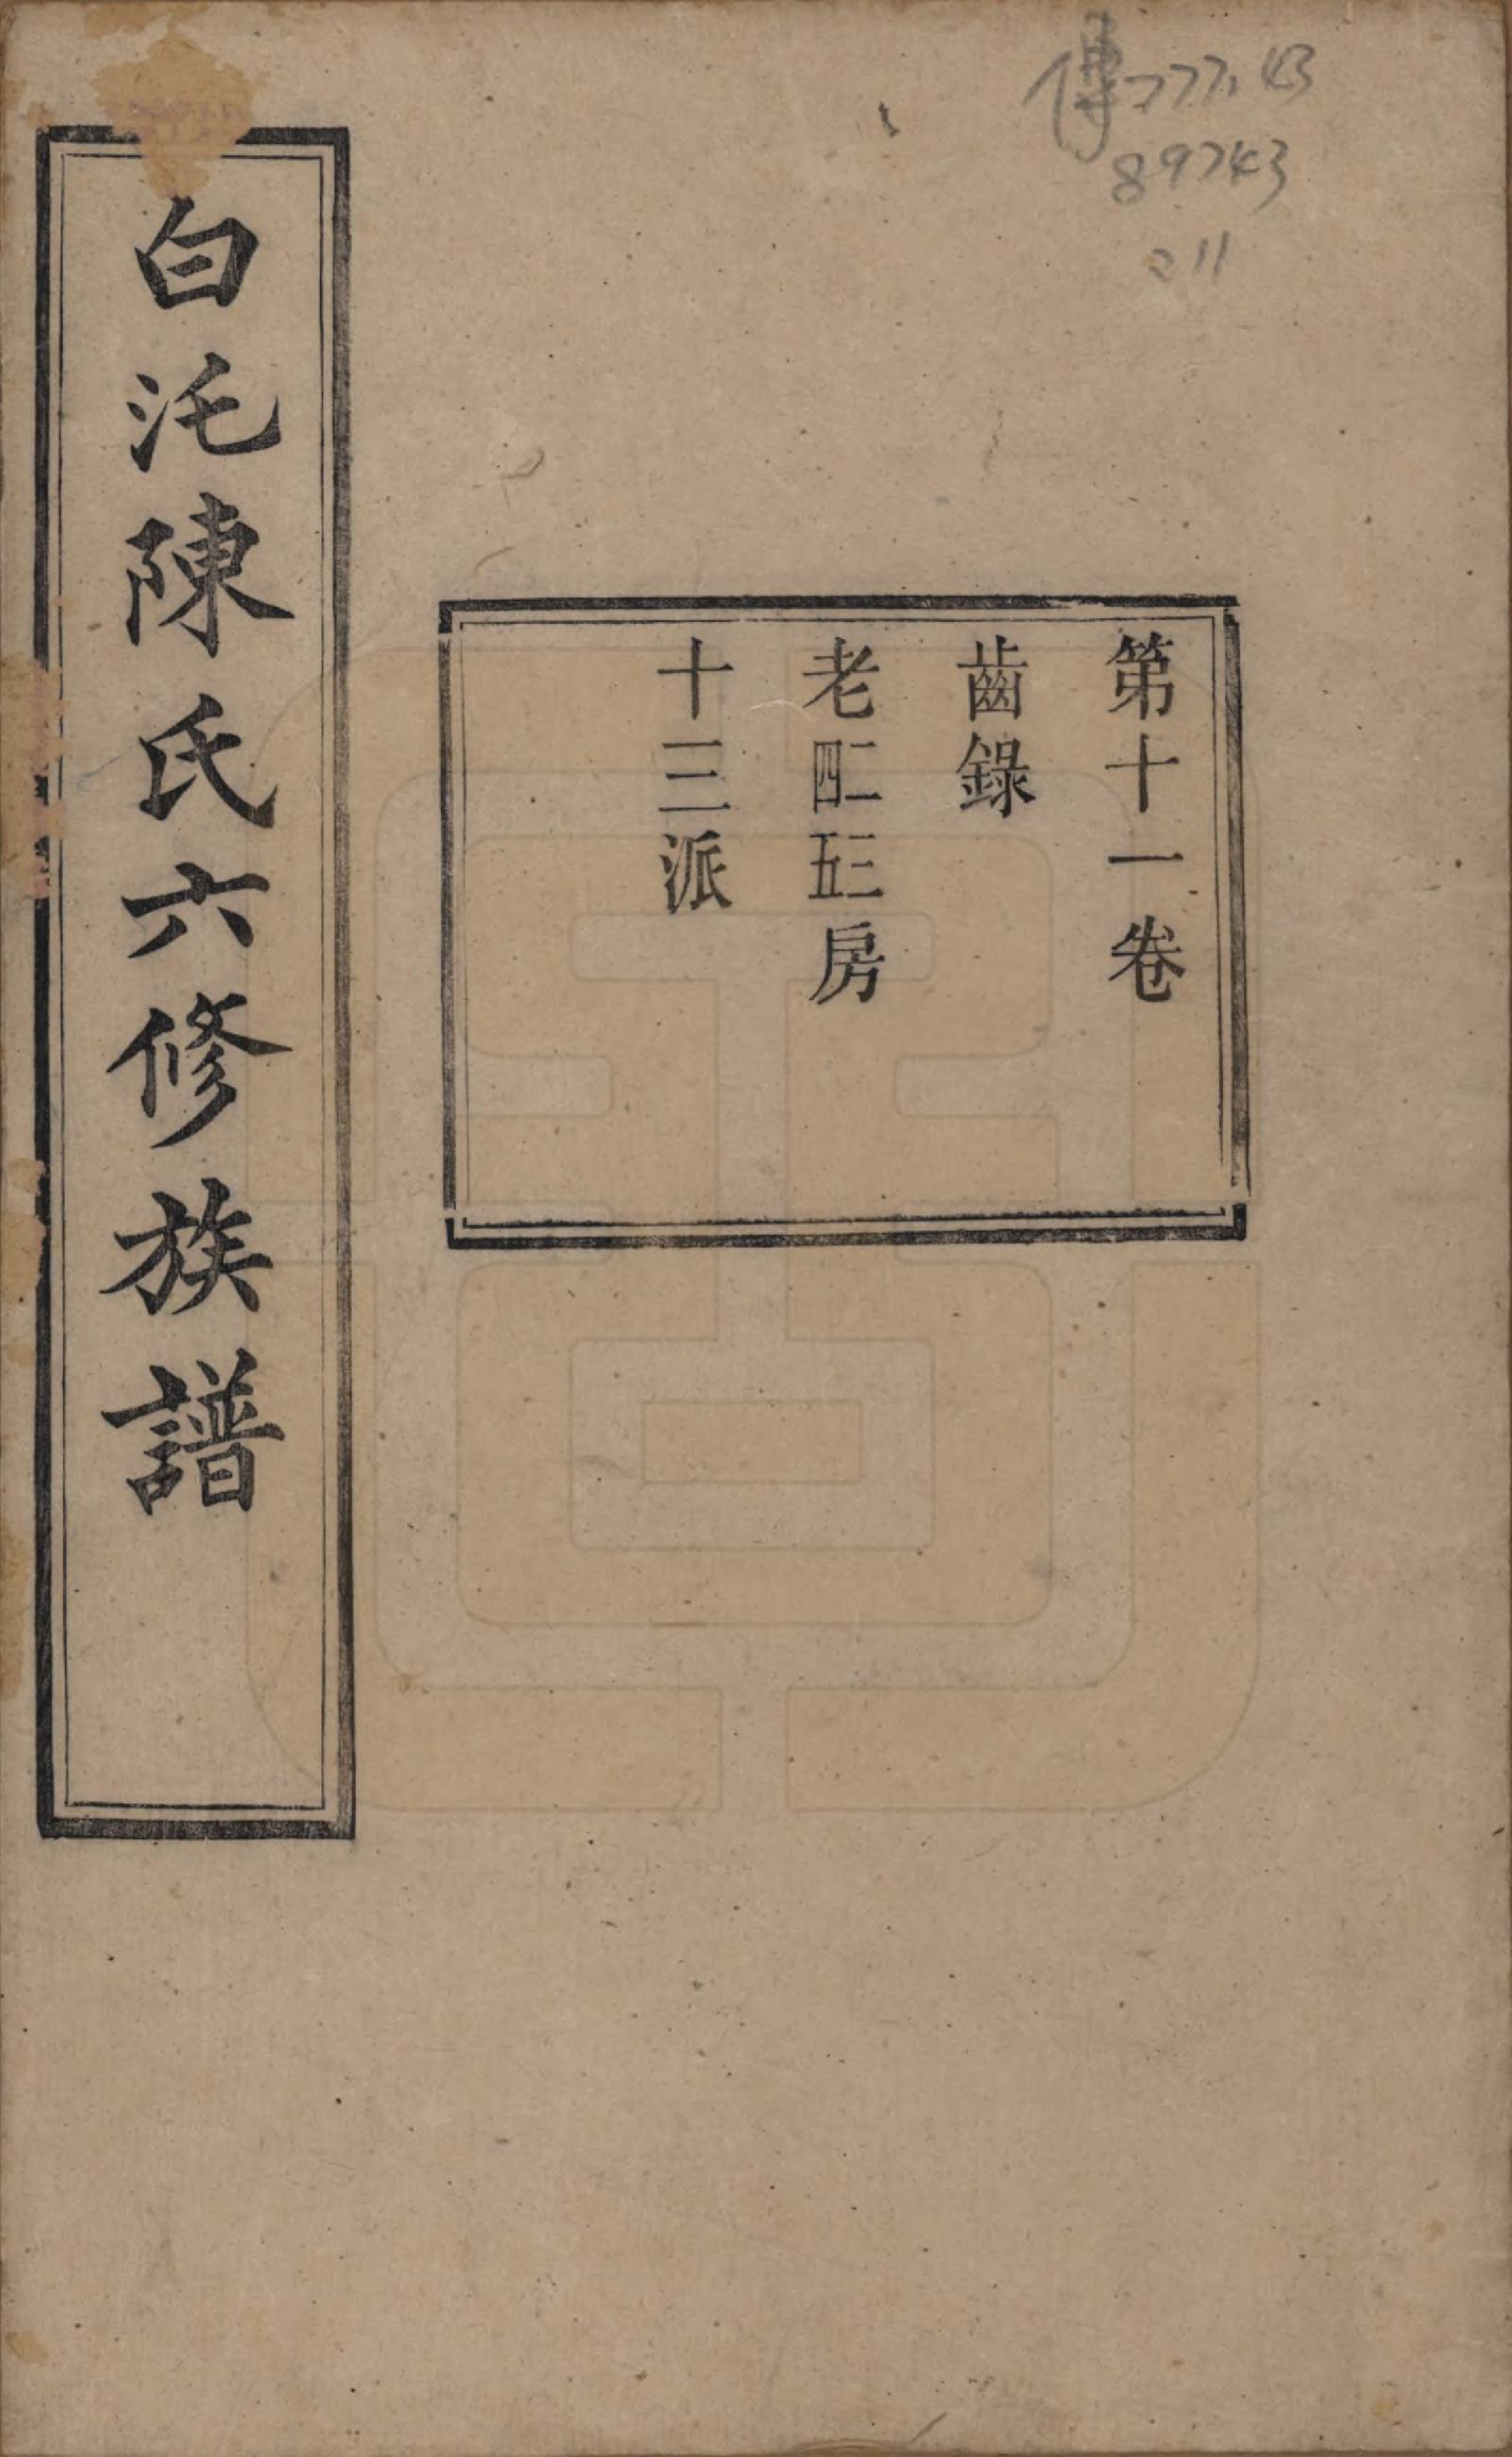 傳777.43
89743
211
第十一卷
齒錄
老二三四五房
十三派
白沱陳氏六修族譜